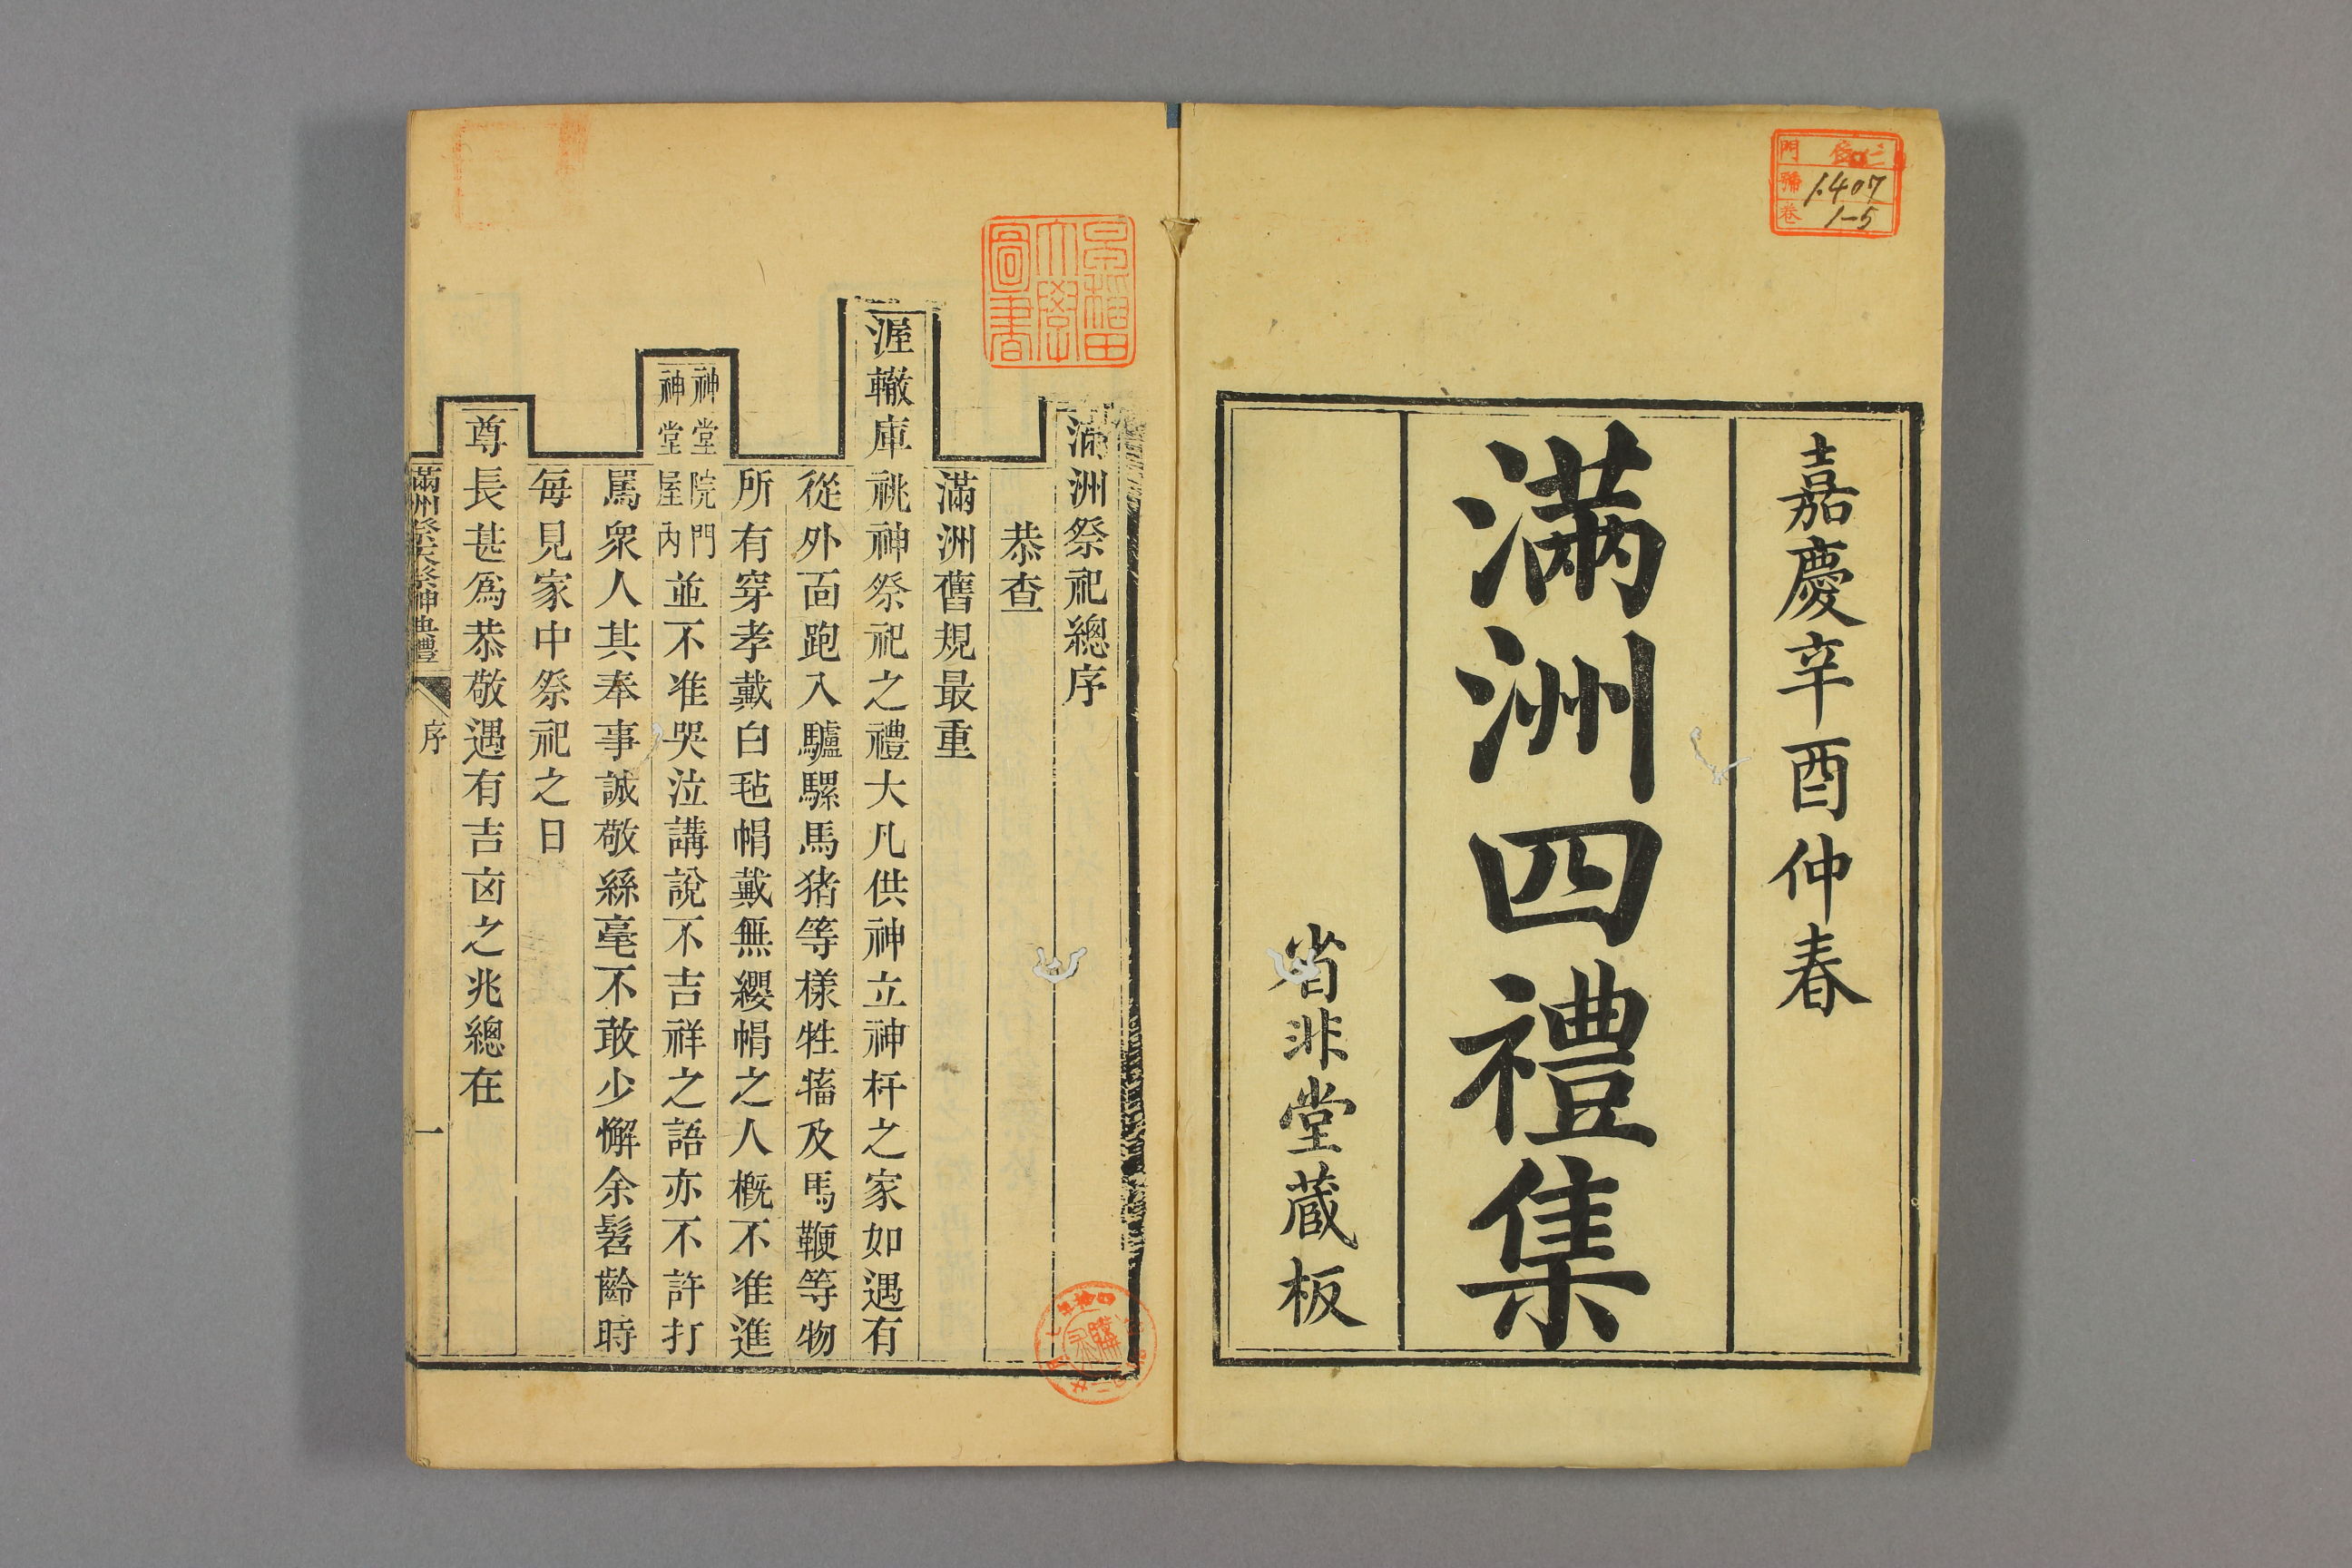 門
號 1407
卷 1-5
嘉慶辛酉仲春
滿洲四禮集
省非堂藏板
早稲田
大學
圖書
滿洲祭祀總序
恭查
滿洲舊規最重
渥轍庫祧神祭祀之禮大凡供神立神杆之家如遇有
從外面跑入驢騾馬猪等樣牲畜及馬鞭等物
所有穿孝戴白毡帽戴無纓帽之人概不准進
神堂院門
神堂屋內並不准哭泣講說不吉祥之語亦不許打
罵衆人其奉事誠敬絲毫不敢少懈余髫齡時
每見家中祭祀之日
尊長甚爲恭敬遇有吉凶之兆總在
滿洲祭天祭神典禮 序 一